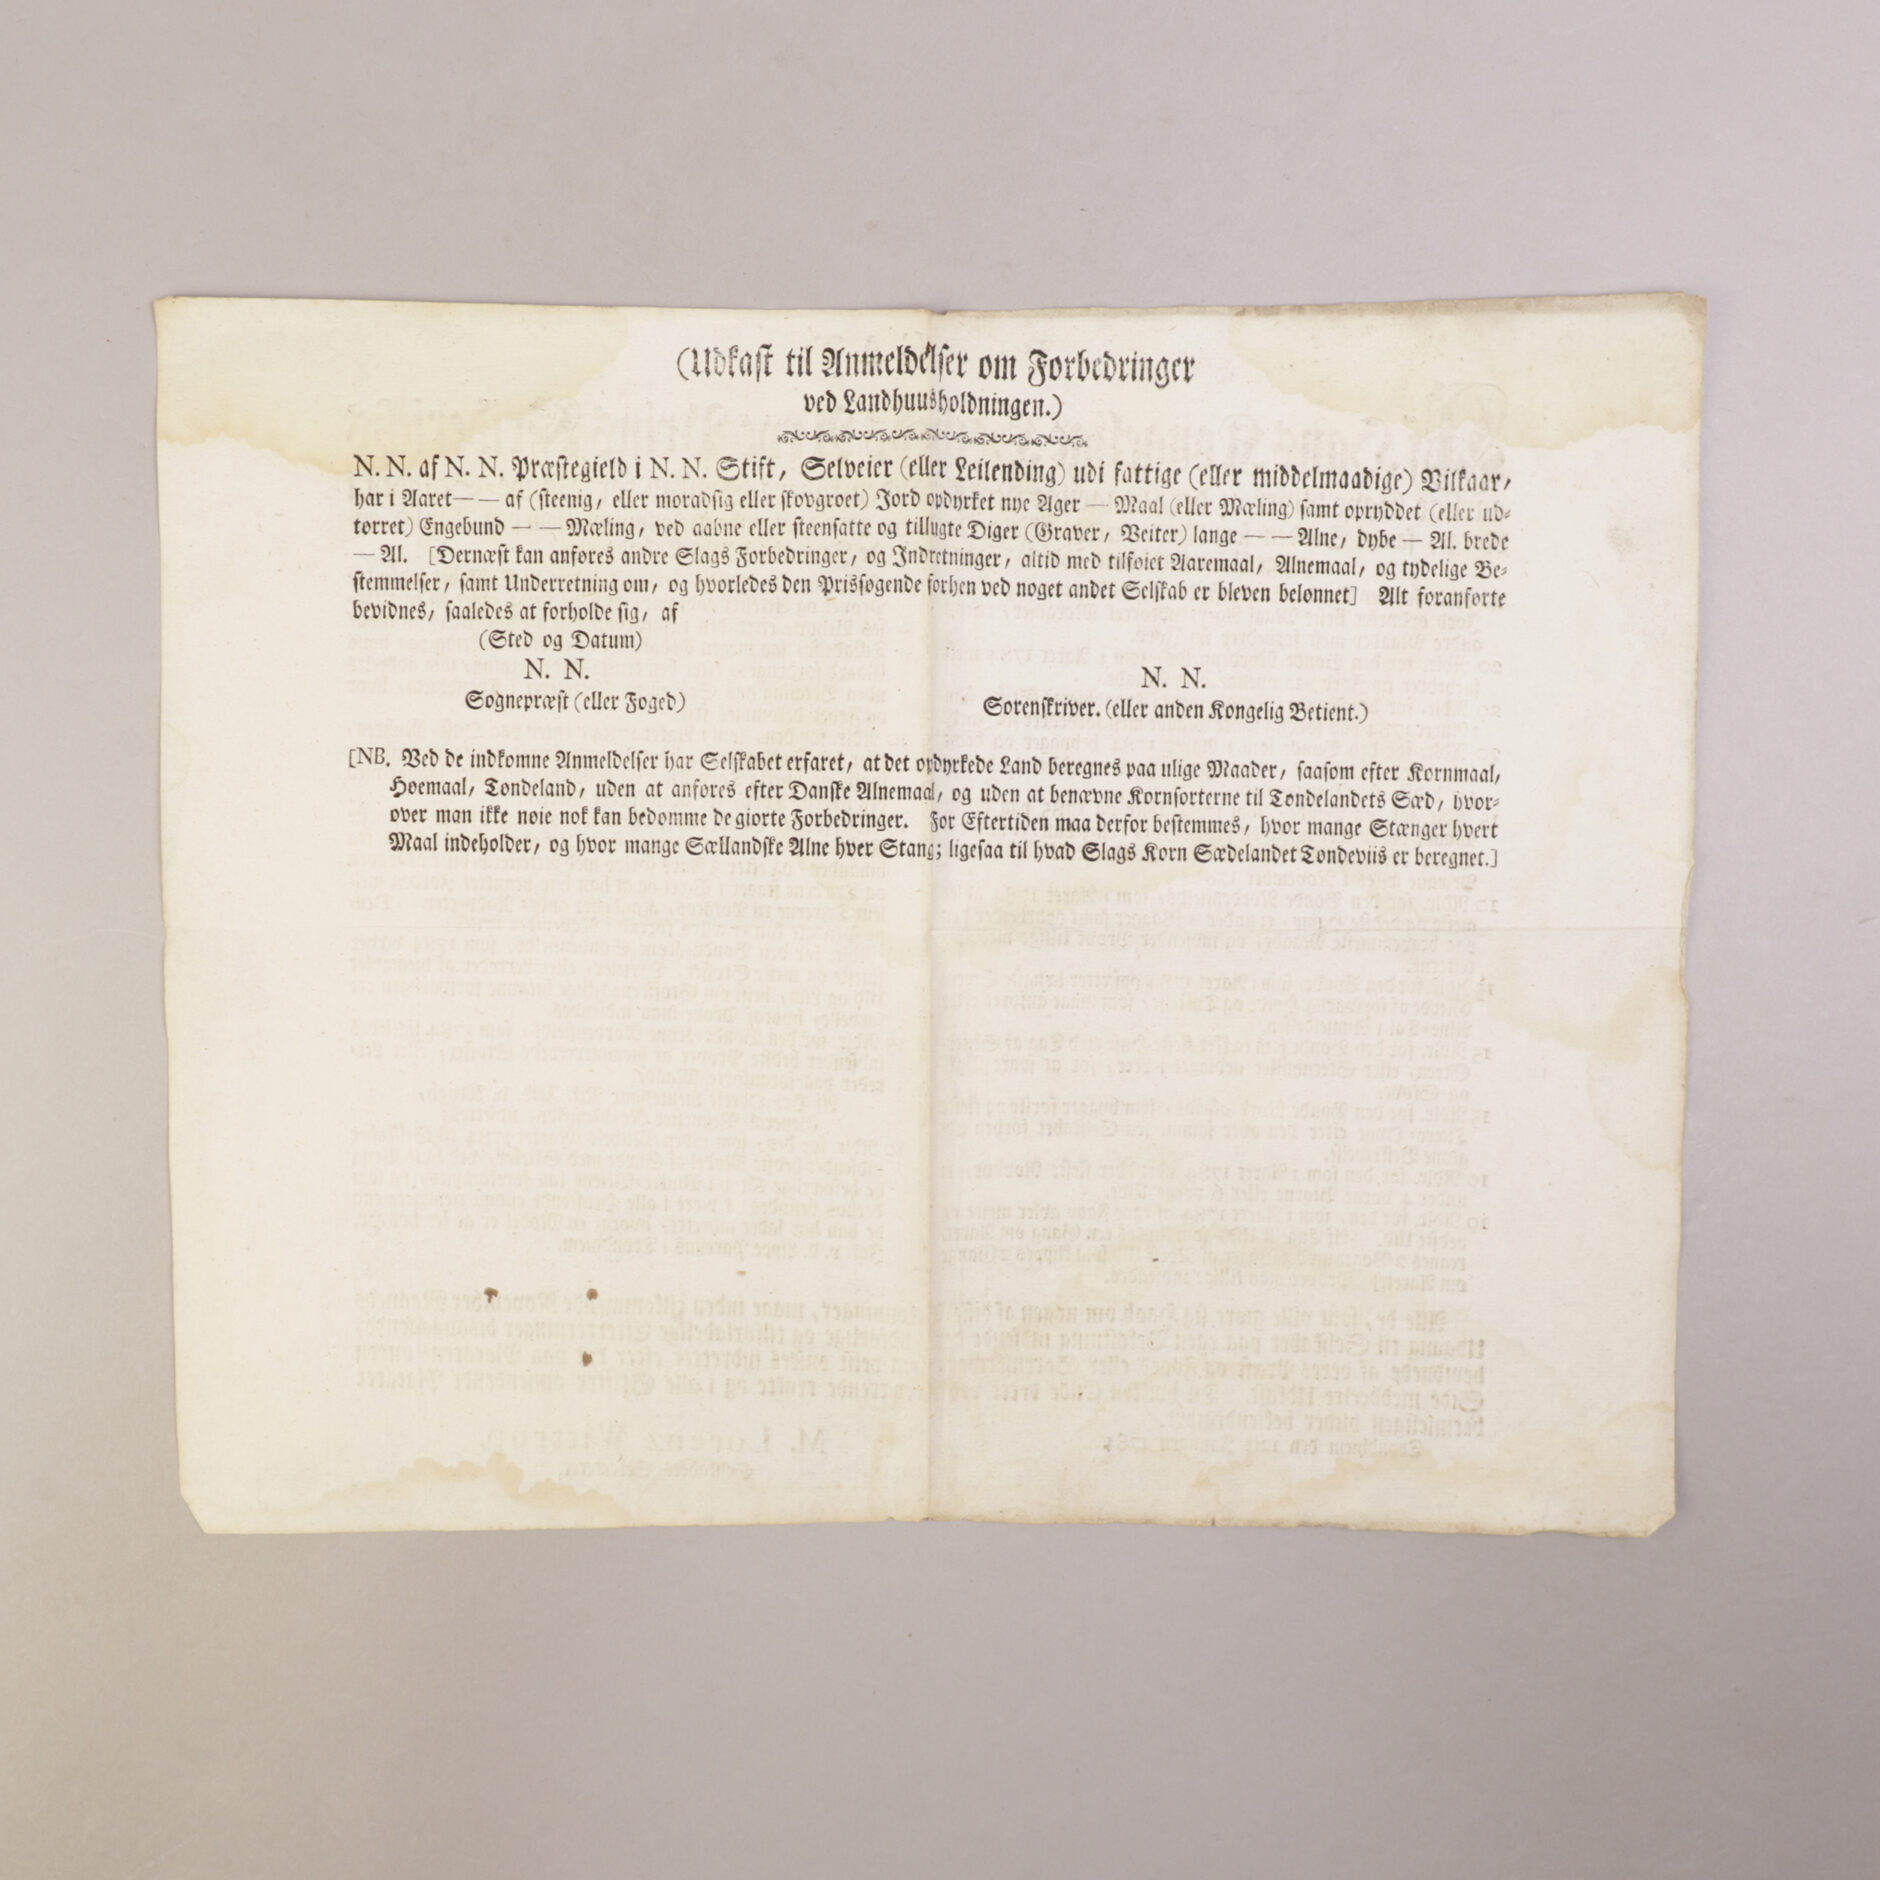 (Udkast til Anmeldelser om Forbedringer
ved Landhuusholdningen.)
N. N. af N. N. Præstegield i N. N. Stift, Selveier (eller Leilending) udi fattige (eller middelmaadige) Vilkaar,
har i Aaret— — af (steenig, eller moradsig eller skovgroet) Jord opdyrket nye Ager — Maal (eller Mæling) samt opryddet (eller ud-
tørret) Engebund — — Mæling, ved aabne eller steensatte og tillugte Diger (Graver, Veiter) lange — — Alne, dybe — Al. brede
— Al. [Dernæst kan anføres andre Slags Forbedringer, og Indretninger, altid med tilføiet Aaremaal, Alnemaal, og tydelige Be-
stemmelser, samt Underretning om, og hvorledes den Prissøgende forhen ved noget andet Selskab er bleven belønnet] Alt foranførte
bevidnes, saaledes at forholde sig, af
(Sted og Datum)
N. N.
Sognepræst (eller Foged)
N. N.
Sorenskriver. (eller anden Kongelig Betient.)
[NB. Ved de indkomne Anmeldelser har Selskabet erfaret, at det opdyrkede Land beregnes paa ulige Maader, saasom efter Kornmaal,
Høemaal, Tøndeland, uden at anføres efter Danske Alnemaal, og uden at benævne Kornsorterne til Tøndelandets Sæd, hvor-
over man ikke nøie nok kan bedømme de giorte Forbedringer. For Eftertiden maa derfor bestemmes, hvor mange Stænger hvert
Maal indeholder, og hvor mange Sællandske Alne hver Stang; ligesaa til hvad Slags Korn Sædelandet Tøndeviis er beregnet.]